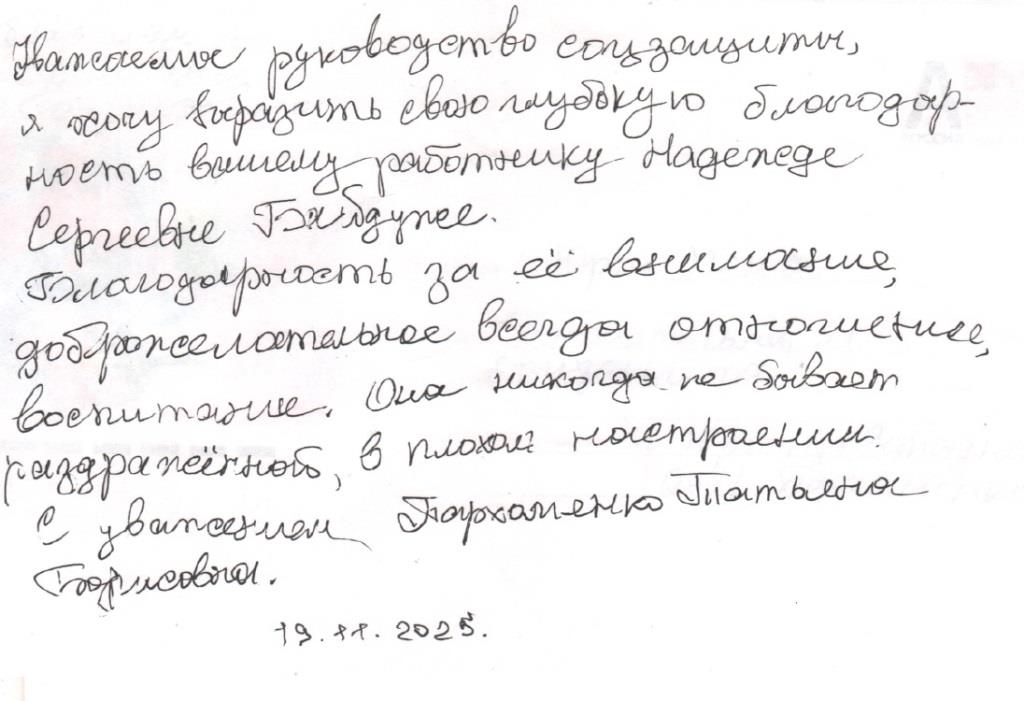 Уважаемое руководство соцзащиты,
я хочу выразить свою глубокую благодар-
ность вашему работнику Надежде
Сергеевне
Благодарность за её внимание,
доброжелательное всегда отношение,
воспитание. Она никогда не бывает
раздражённой, в плохом настроении.
С уважением Пархоменко Татьяна
Борисовна.
19.11.2025.